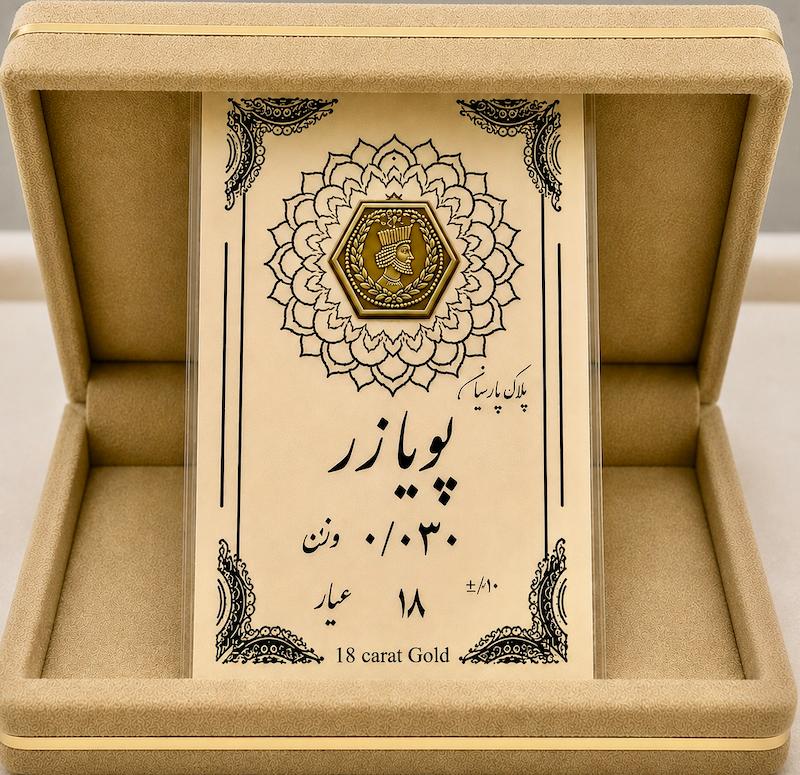 پلاک پارسیان
پویا زر
۰/۰۳۰ وزن
±٪۱۰
۱۸ عیار
18 carat Gold